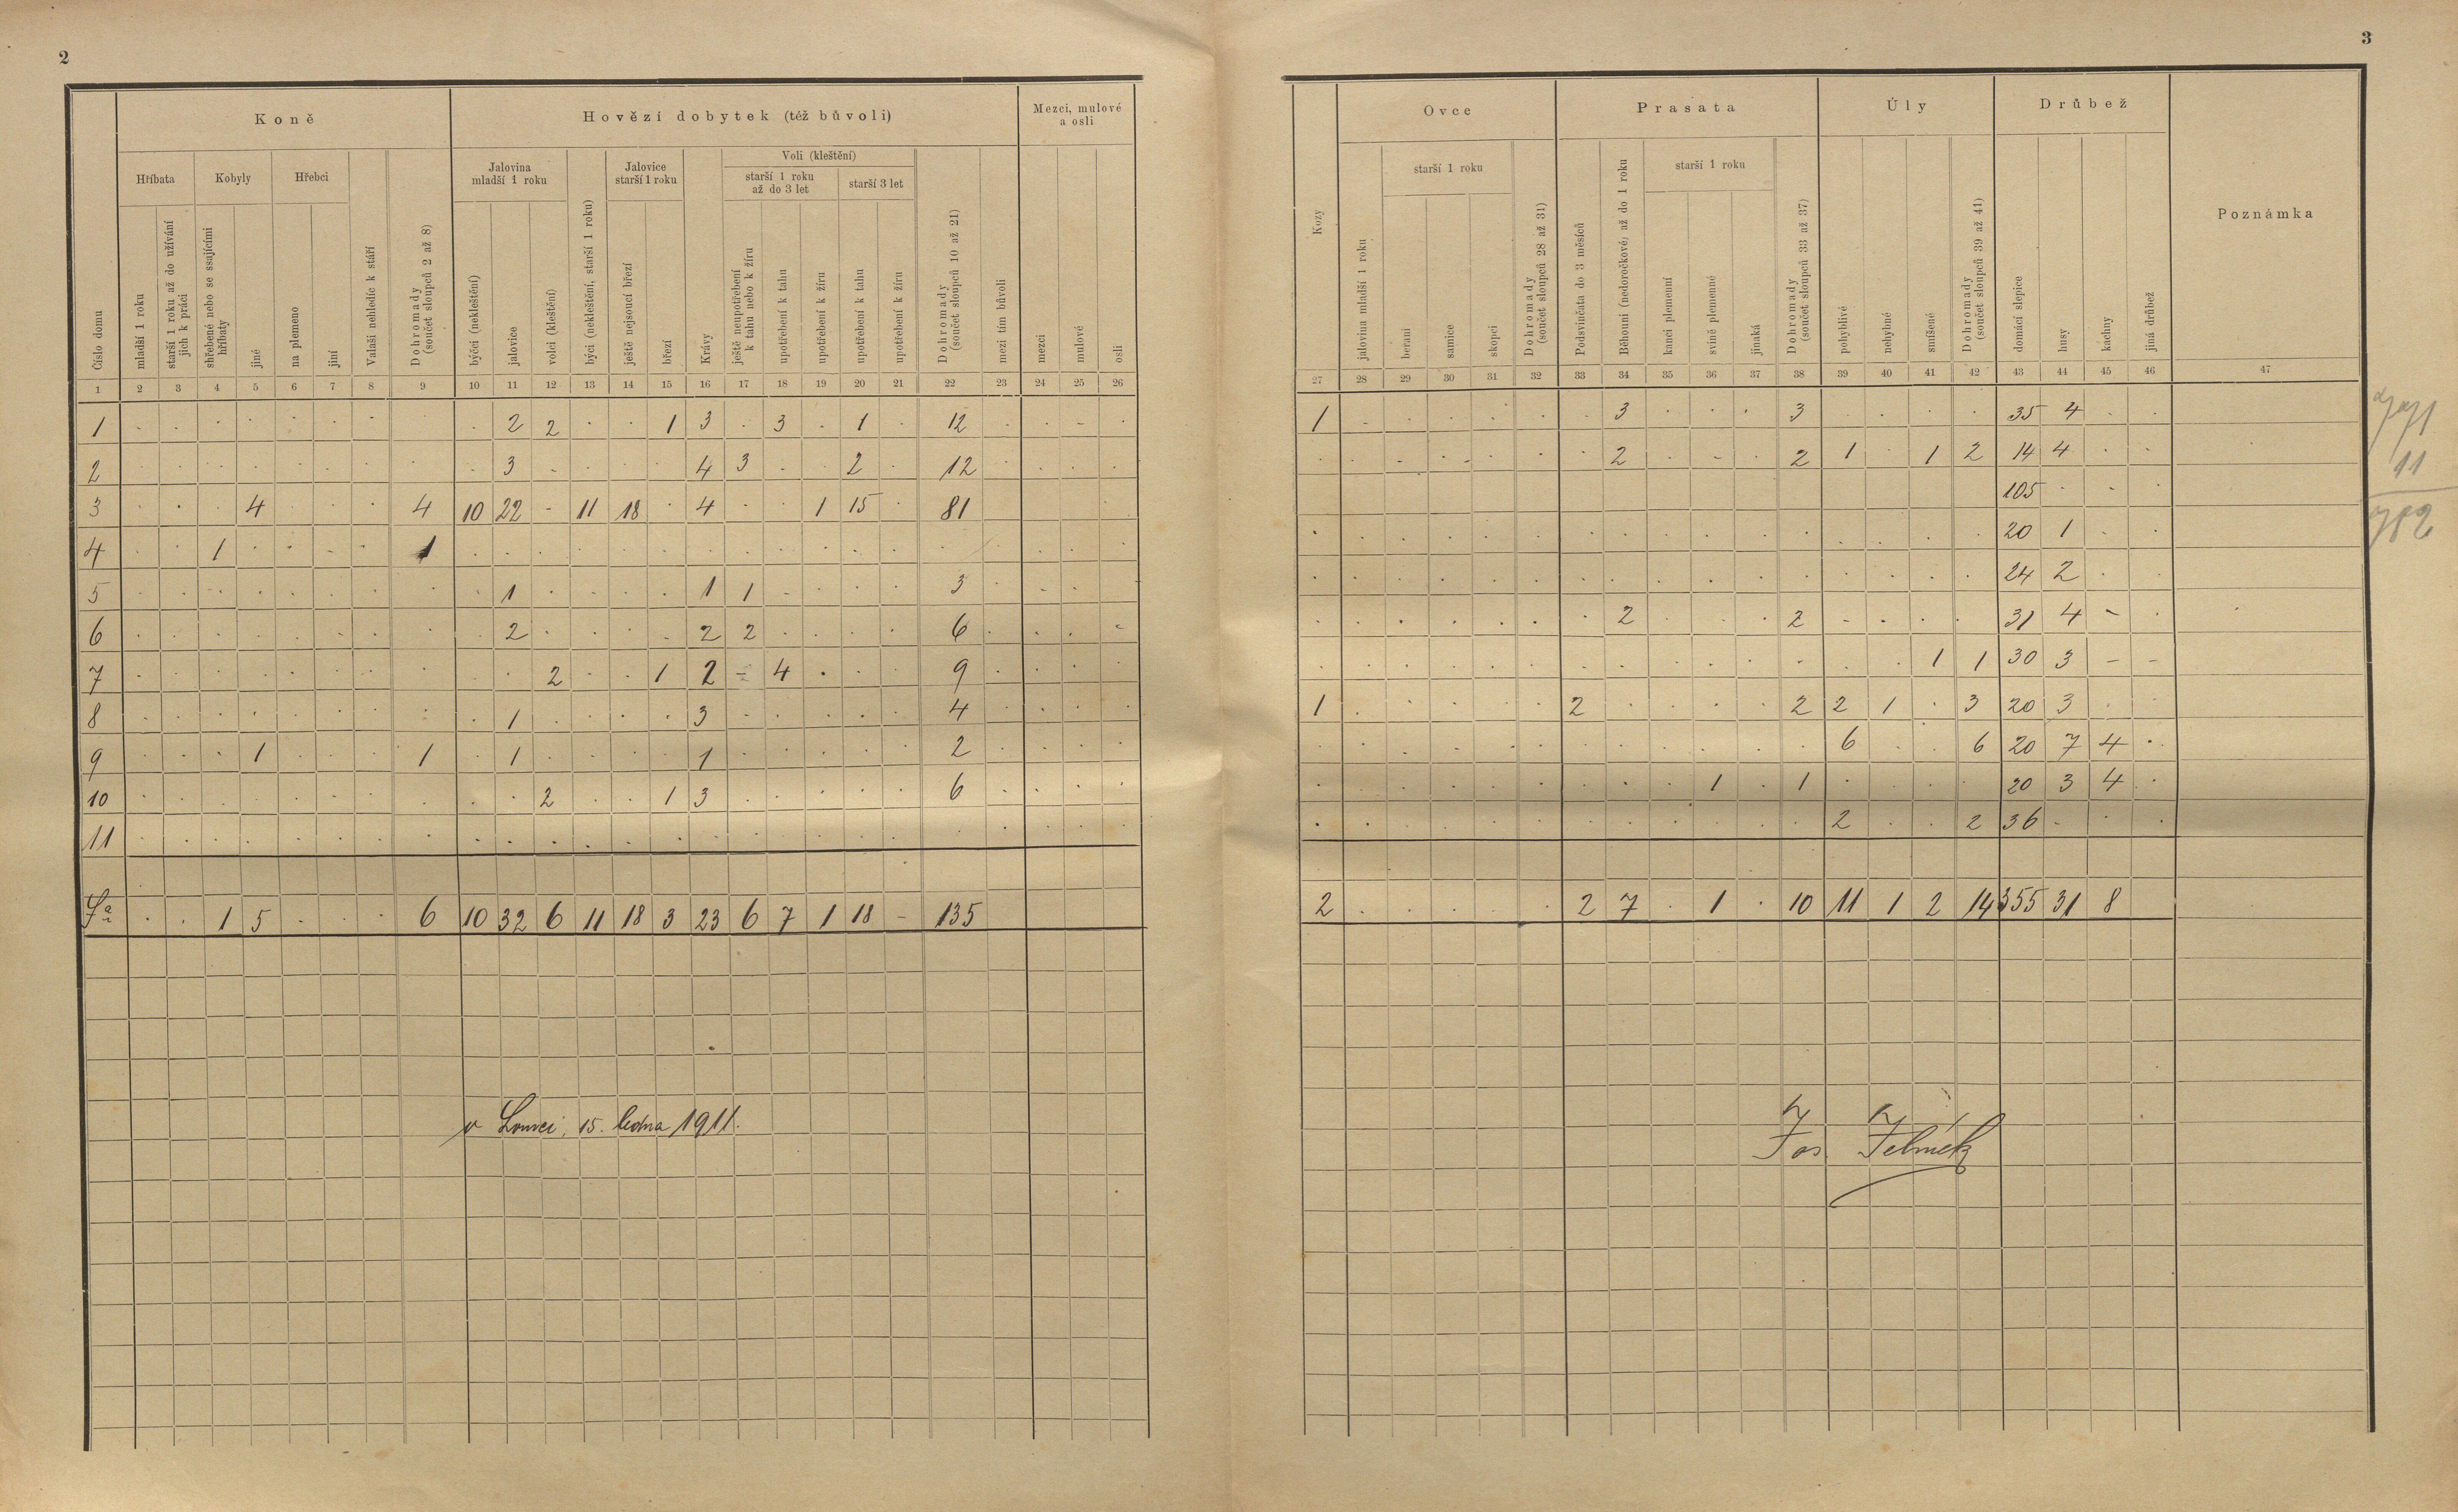 2
Koně
Hovězí dobytek (též bůvoli)
Mezci, mulové
a osli
Hříbata
Kobyly
Hřebci
Jalovina
mladší 1 roku
Jalovice
starší 1 roku
Voli (kleštění)
starší 1 roku
až do 3 let
starší 3 let
Číslo domu
mladší 1 roku
starší 1 roku až do užívání
jich k práci
shřebené nebo se ssajícími
hříbaty
jiné
na plemeno
jiní
Valaši nehledíc k stáří
Dohromady
(součet sloupců 2 až 8)
býčci (nekleštění)
jalovice
volci (kleštění)
býci (nekleštění, starší 1 roku)
ještě nejsoucí březí
březí
Krávy
ještě neupotřebení
k tahu nebo k žíru
upotřebení k tahu
upotřebení k žíru
upotřebení k tahu
upotřebení k žíru
Dohromady
(součet sloupců 10 až 21)
mezi tím bůvoli
mezci
mulové
osli
1 2 3 4 5 6 7 8 9 10 11 12 13 14 15 16 17 18 19 20 21 22 23 24 25 26
1 2 2 1 3 3 1 12
2 3 4 3 2 12
3 4 4 10 22 11 18 4 1 15 81
4 1 1
5 1 1 1 3
6 2 2 2 6
7 2 1 2 4 9
8 1 3 4
9 1 1 1 1 2
10 2 1 3 6
11
Sa 1 5 6 10 32 6 11 18 3 23 6 7 1 18 - 135
v Lomci, 15. ledna 1911.
3
Ovce
Prasata
Úly
Drůbež
Poznámka
starší 1 roku
starší 1 roku
Kozy
jalovina mladší 1 roku
berani
samice
skopci
Dohromady
(součet sloupců 28 až 31)
Podsvinčata do 3 měsíců
Běhouni (nedoročkové) až do 1 roku
kanci plemenní
svině plemenné
jinaká
Dohromady
(součet sloupců 33 až 37)
pohyblivé
nehybné
smíšené
Dohromady
(součet sloupců 39 až 41)
domácí slepice
husy
kachny
jiná drůbež
27 28 29 30 31 32 33 34 35 36 37 38 39 40 41 42 43 44 45 46 47
1 3 3 35 4
2 2 1 1 2 14 4
105
20 1
24 2
2 2 31 4
1 1 30 3 - -
1 2 2 2 1 3 20 3
6 6 20 7 4
1 1 20 3 4
2 2 36
2 2 7 1 10 11 1 2 14 355 31 8
11
782
Jos.